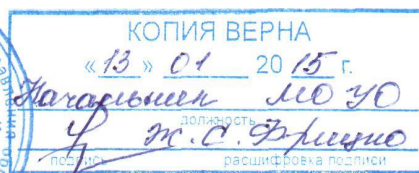 КОПИЯ ВЕРНА
«13» 01 2015 г.
Начальник МО УО
должность
Ж.С.
подпись расшифровка подписи